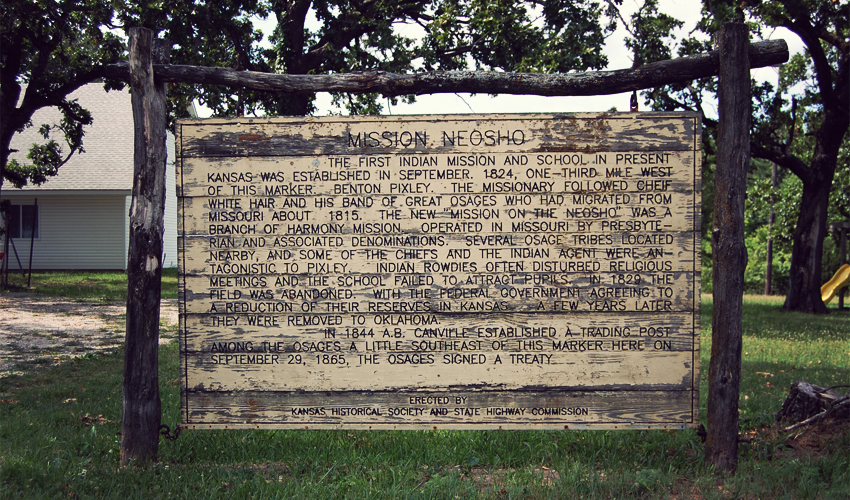 MISSION NEOSHO
THE FIRST INDIAN MISSION AND SCHOOL IN PRESENT
KANSAS WAS ESTABLISHED IN SEPTEMBER, 1824, ONE-THIRD MILE WEST
OF THIS MARKER. BENTON PIXLEY, THE MISSIONARY FOLLOWED CHEIF
WHITE HAIR AND HIS BAND OF GREAT OSAGES WHO HAD MIGRATED FROM
MISSOURI ABOUT 1815. THE NEW "MISSION ON THE NEOSHO" WAS A
BRANCH OF HARMONY MISSION, OPERATED IN MISSOURI BY PRESBYTE-
RIAN AND ASSOCIATED DENOMINATIONS. SEVERAL OSAGE TRIBES LOCATED
NEARBY, AND SOME OF THE CHIEFS AND THE INDIAN AGENT WERE AN-
TAGONISTIC TO PIXLEY. INDIAN ROWDIES OFTEN DISTURBED RELIGIOUS
MEETINGS AND THE SCHOOL FAILED TO ATTRACT PUPILS. IN 1829 THE
FIELD WAS ABANDONED, WITH THE FEDERAL GOVERNMENT AGREEING TO
A REDUCTION OF THEIR RESERVES IN KANSAS. A FEW YEARS LATER
THEY WERE REMOVED TO OKLAHOMA.
IN 1844 A.B. CANVILLE ESTABLISHED A TRADING POST
AMONG THE OSAGES A LITTLE SOUTHEAST OF THIS MARKER HERE ON
SEPTEMBER 29, 1865, THE OSAGES SIGNED A TREATY.
ERECTED BY
KANSAS HISTORICAL SOCIETY AND STATE HIGHWAY COMMISSION